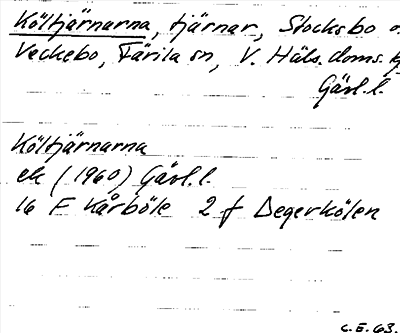 Költjärnarna, tjärnar, Stocksbo o.
Veckebo, Färila sn, V. Häls. doms.
Gävl. l.
Költjärnarna
ek (1960) Gävl. l.
16 F Kårböle 2 f Degerkölen
C.E. 63.